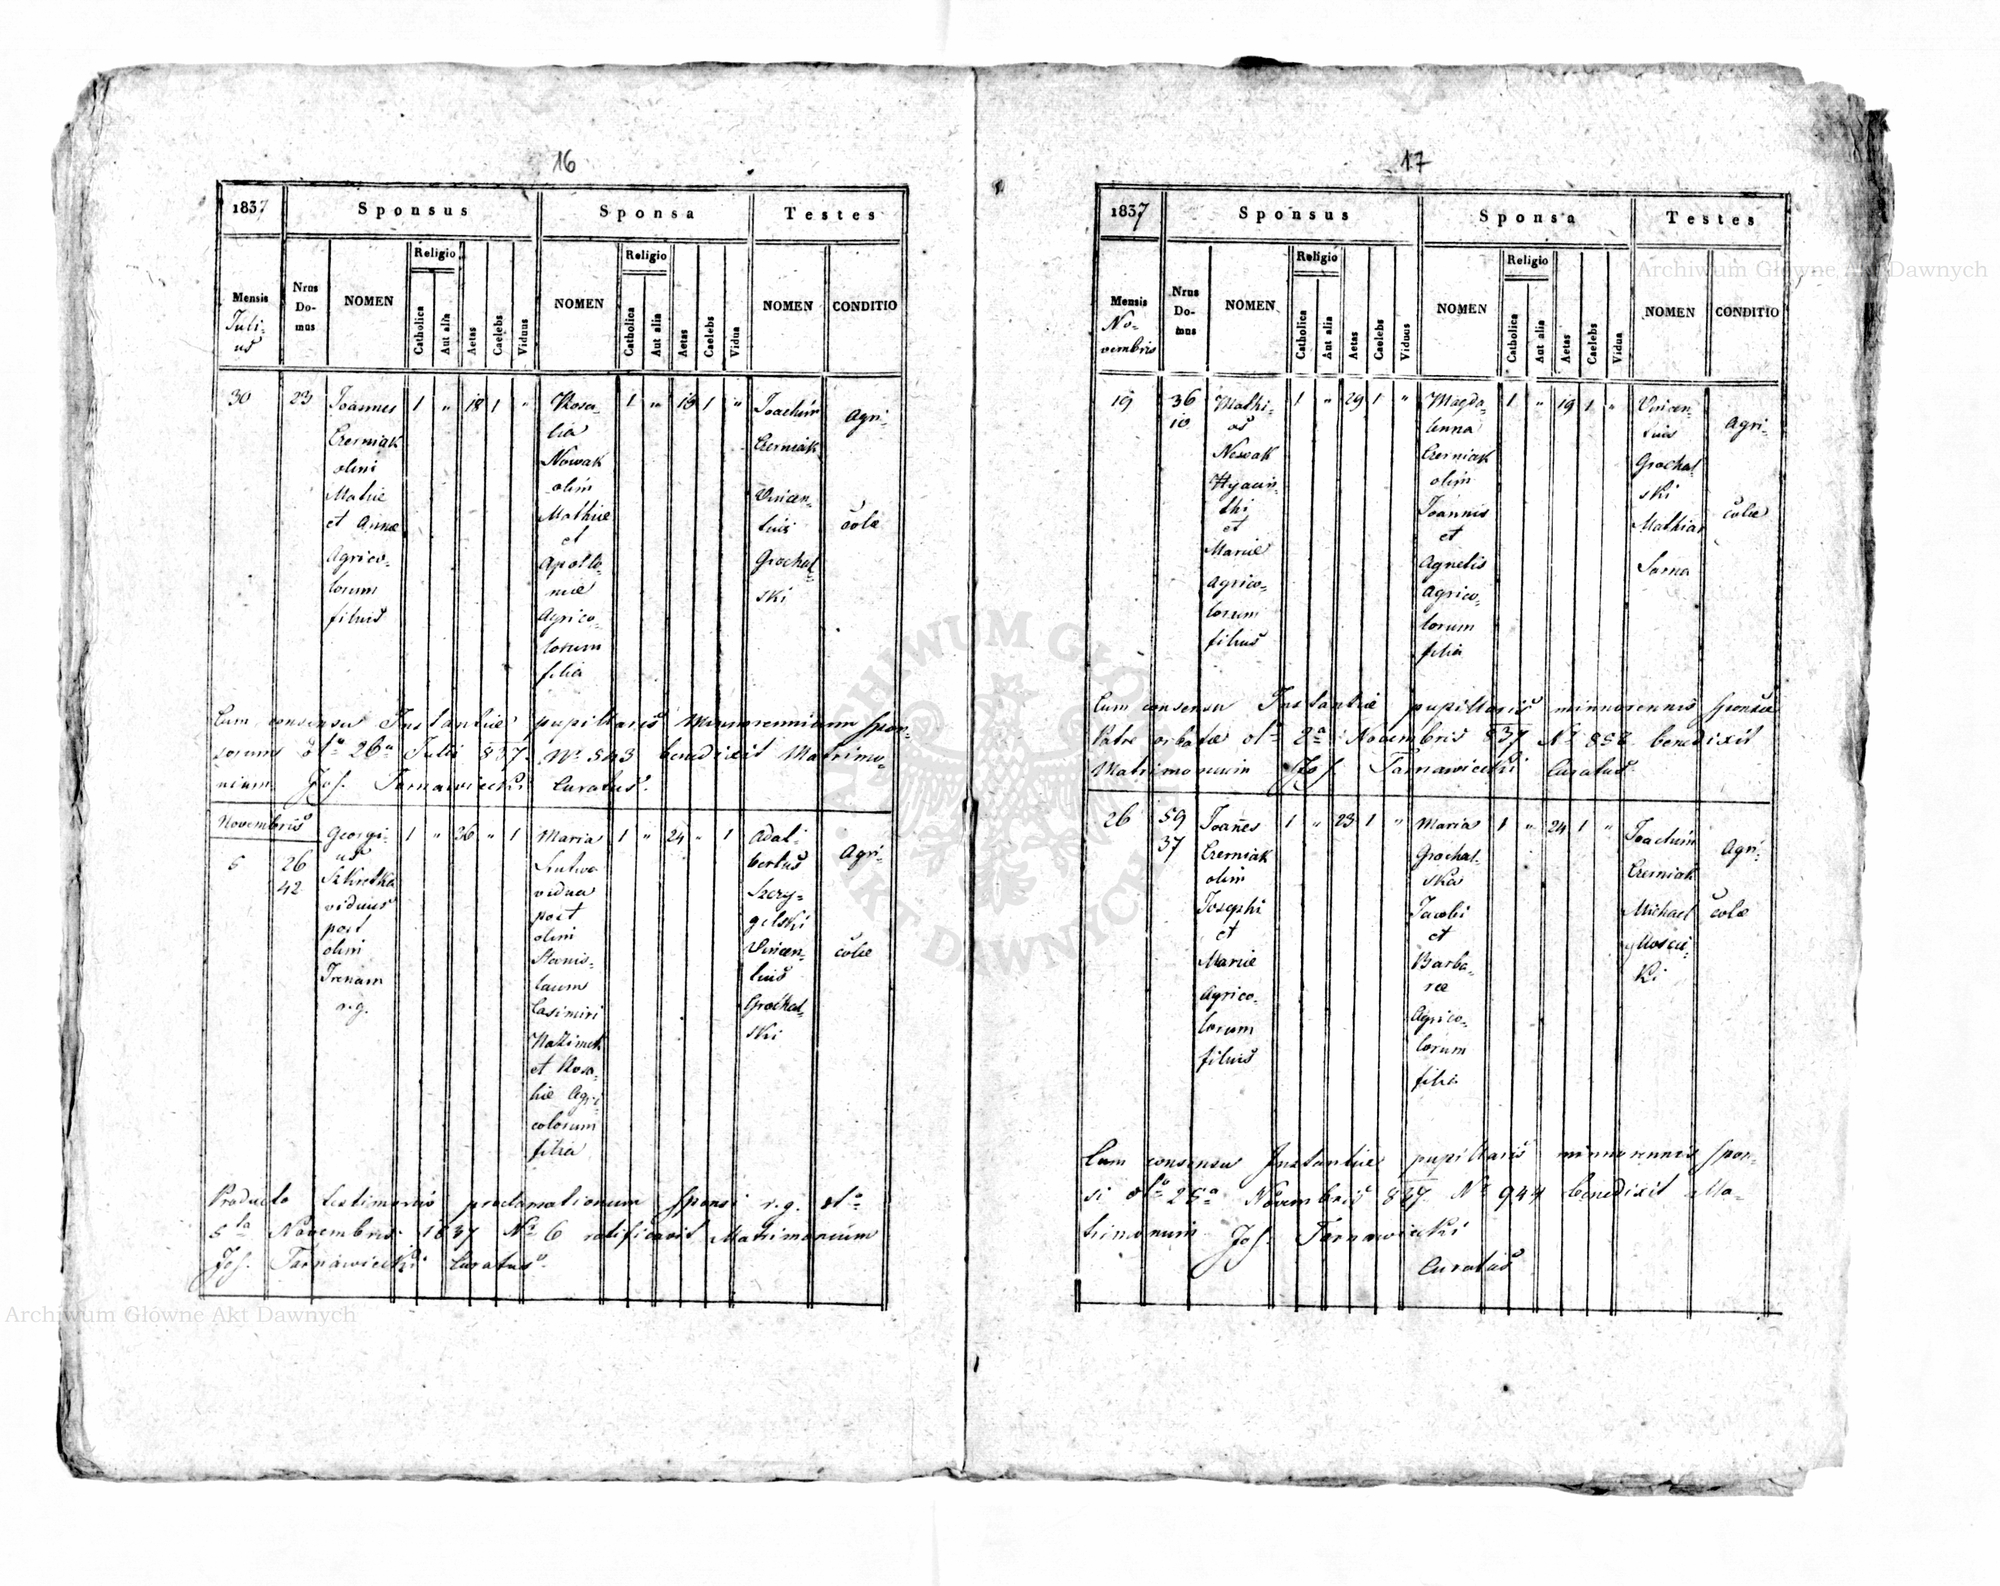 16
1837
Sponsus
Sponsa
Testes
Mensis
Juli-
us
Nrus
Do-
mus
NOMEN
Religio
Catholica
Aut alia
Aetas
Caelebs
Viduus
NOMEN
Religio
Catholica
Aut alia
Aetas
Caelebs
Vidua
NOMEN
CONDITIO
30
23
Joannes
Czerniak
olim
Matiæ
et Annæ
Agrico-
larum
filius
1 " 18 1 "
Rosa-
lia
Nowak
olim
Mathiæ
et
Apollo-
niæ
Agrico-
larum
filia
1 " 18 1 "
Joachim
Czerniak
Vincen-
tius
Grochal-
ski
Agri-
colæ
Cum consensu Instantiæ pupillaris Minorennium Spon-
sorum dto 26a Julii 837. No 543 benedixit Matrimo-
nium Jos. Tarnawiecki Curatus.
Novembris
5
26
42
Georgi-
us
Szkretka
viduus
post
olim
Irenam
r.g.
1 " 26 " 1
Maria
vidua
post
olim
Stanis-
laum
Casimiri
Kazimek
et Rosa-
liæ Agri-
colarum
filia
1 " 24 " 1
Adal-
bertus
Szczy-
gelski
Vincen-
tius
Grochal-
ski
Agri-
colæ
Producto testimonio proclamationum Sponsi r.g. dto
5ta Novembris 1837 No 6 ratificavit Matrimonium
Jos. Tarnawiecki Curatus.
17
1837
Sponsus
Sponsa
Testes
Mensis
No-
vembris
Nrus
Do-
mus
NOMEN
Religio
Catholica
Aut alia
Aetas
Caelebs
Viduus
NOMEN
Religio
Catholica
Aut alia
Aetas
Caelebs
Vidua
NOMEN
CONDITIO
19
36
10
Mathi-
as
Nowak
Hyacin-
thi
et
Mariæ
Agrico-
larum
filius
1 " 29 1 "
Magda-
lenna
Czerniak
olim
Joannis
et
Agnetis
Agrico-
larum
filia
1 " 19 1 "
Vincen-
tius
Grochal-
ski
Mathias
Sarna
Agri-
colæ
Cum consensu Instantiæ pupillaris minorennis Sponsæ
Patre orbatæ dto 2a Novembris 837 No 858 benedixit
Matrimonium Jos. Tarnawiecki Curatus.
26
59
37
Joañes
Czerniak
olim
Josephi
et
Mariæ
Agrico-
larum
filius
1 " 23 1 "
Maria
Grochal-
ska
Jacobi
et
Barba-
ræ
Agrico-
larum
filia
1 " 24 1 "
Joachim
Czerniak
Michael
ki
Agri-
colæ
Cum consensu Instantiæ pupillaris minorennis Spon-
si dto 25a Novembris 837. No 944 benedixit Ma-
trimonium Jos. Tarnawiecki
Curatus
Archiwum Główne Akt Dawnych
ARCHIWUM GŁÓWNE
AKT DAWNYCH
Archiwum Główne Akt Dawnych